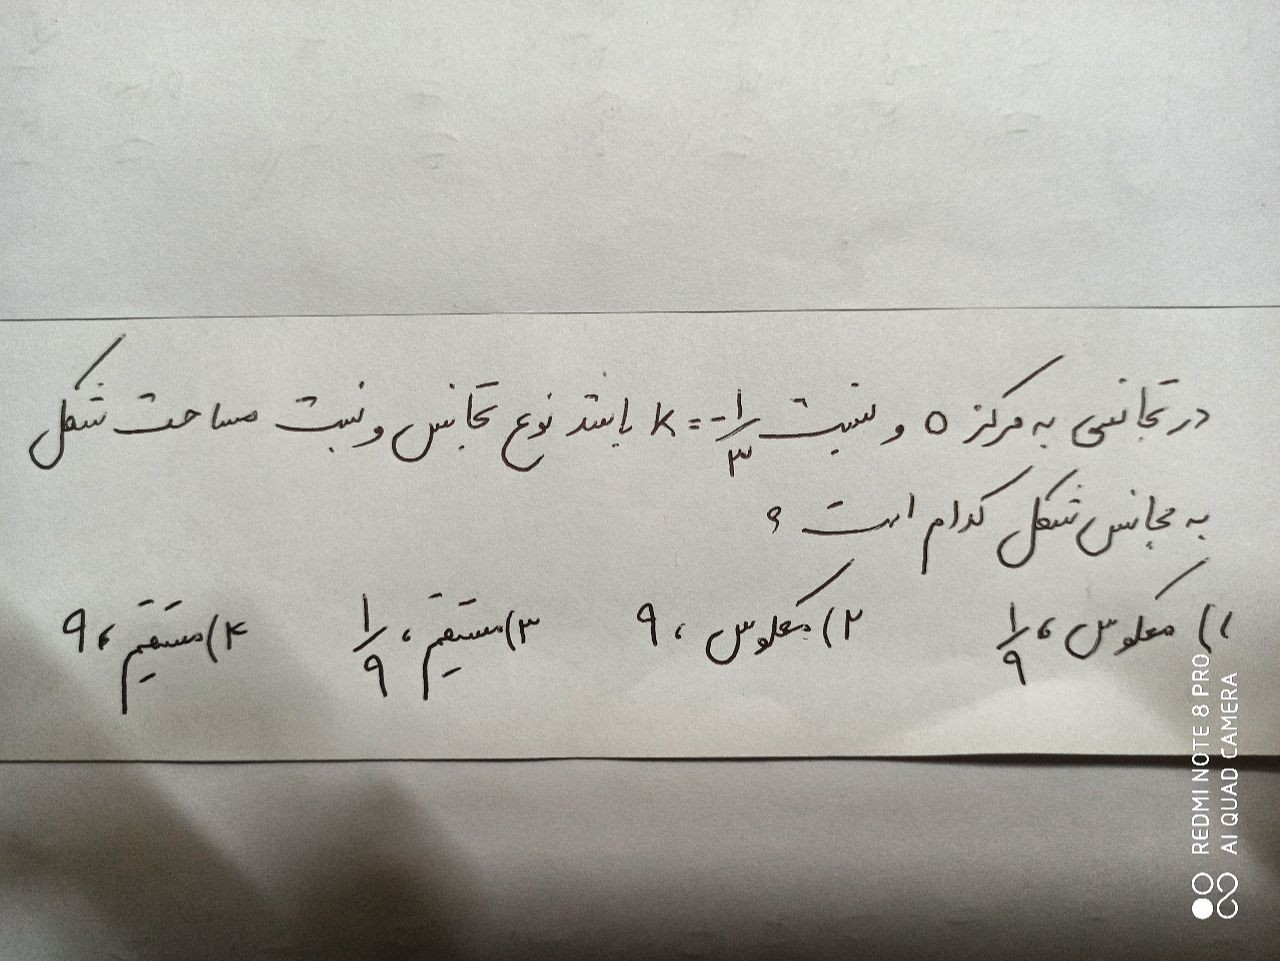 در تجانسی به مرکز O و نسبت k = -۱/۳ باشد نوع تجانس و نسبت مساحت شکل
به مجانس شکل کدام است ؟
۱) معکوس ، ۱/۹ ۲) معکوس ، ۹ ۳) مستقیم ، ۱/۹ ۴) مستقیم ، ۹
REDMI NOTE 8 PRO
AI QUAD CAMERA